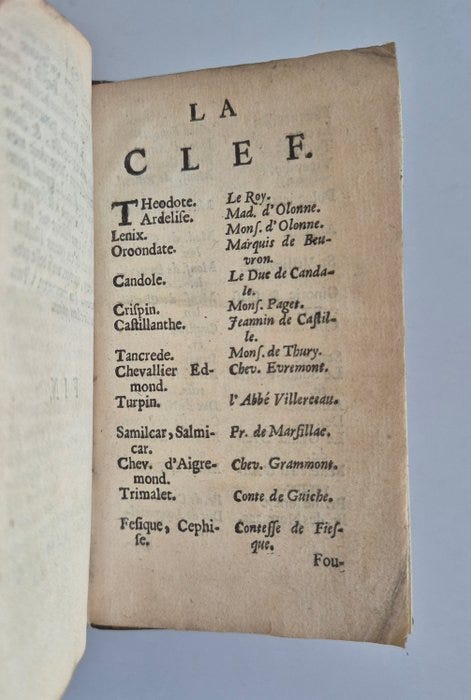 LA
CLEF.
THeodote. Le Roy.
Ardelise. Mad. d'Olonne.
Lenix. Monſ. d'Olonne.
Oroondate. Marquis de Beu-
vron.
Candole. Le Duc de Canda-
le.
Criſpin. Monſ. Paget.
Caſtillanthe. Jeannin de Caſtil-
le.
Tancrede. Monſ. de Thury.
Chevallier Ed- Chev. Evremont.
mond.
Turpin. l'Abbé Villereeau.
Samilcar, Salmi- Pr. de Marſillac.
car.
Chev. d'Aigre- Chev. Grammont.
mond.
Trimalet. Conte de Guiche.
Feſique, Cephi- Conteſſe de Fieſ-
ſe. que.
Fou-